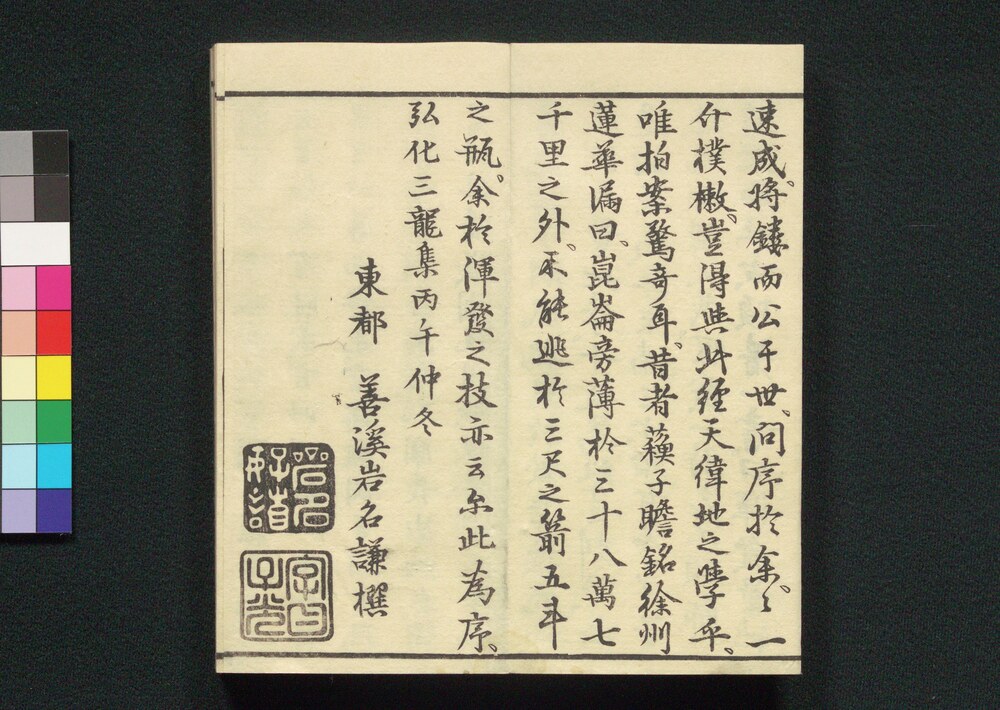 速成。将鏤而公于世。問序於余。〻一
介樸樕。豈得與此經天緯地之學乎。
唯拍案驚奇耳。昔者蘓子瞻銘徐州
蓮華漏曰。崑崙旁薄於三十八萬七
千里之外。不能逃於三尺之箭五斗
之瓶。余於渾發之技亦云尓此為序。
弘化三龍集丙午仲冬
東都　善溪岩名謙撰
岩名
字曰